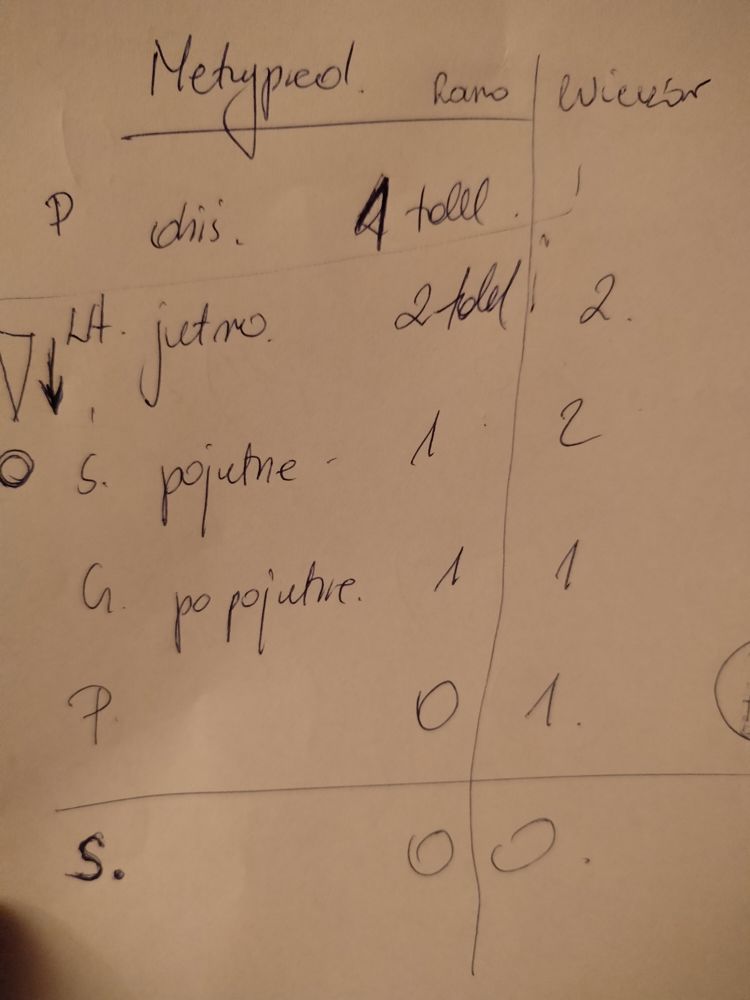 Metypred. Rano Wieczór
P dziś. 4 tabl.
Wt. jutro. 2 tabl 2.
Ś. pojutrze - 1 2
C. po pojutrze. 1 1
P. 0 1.
S. 0 0.